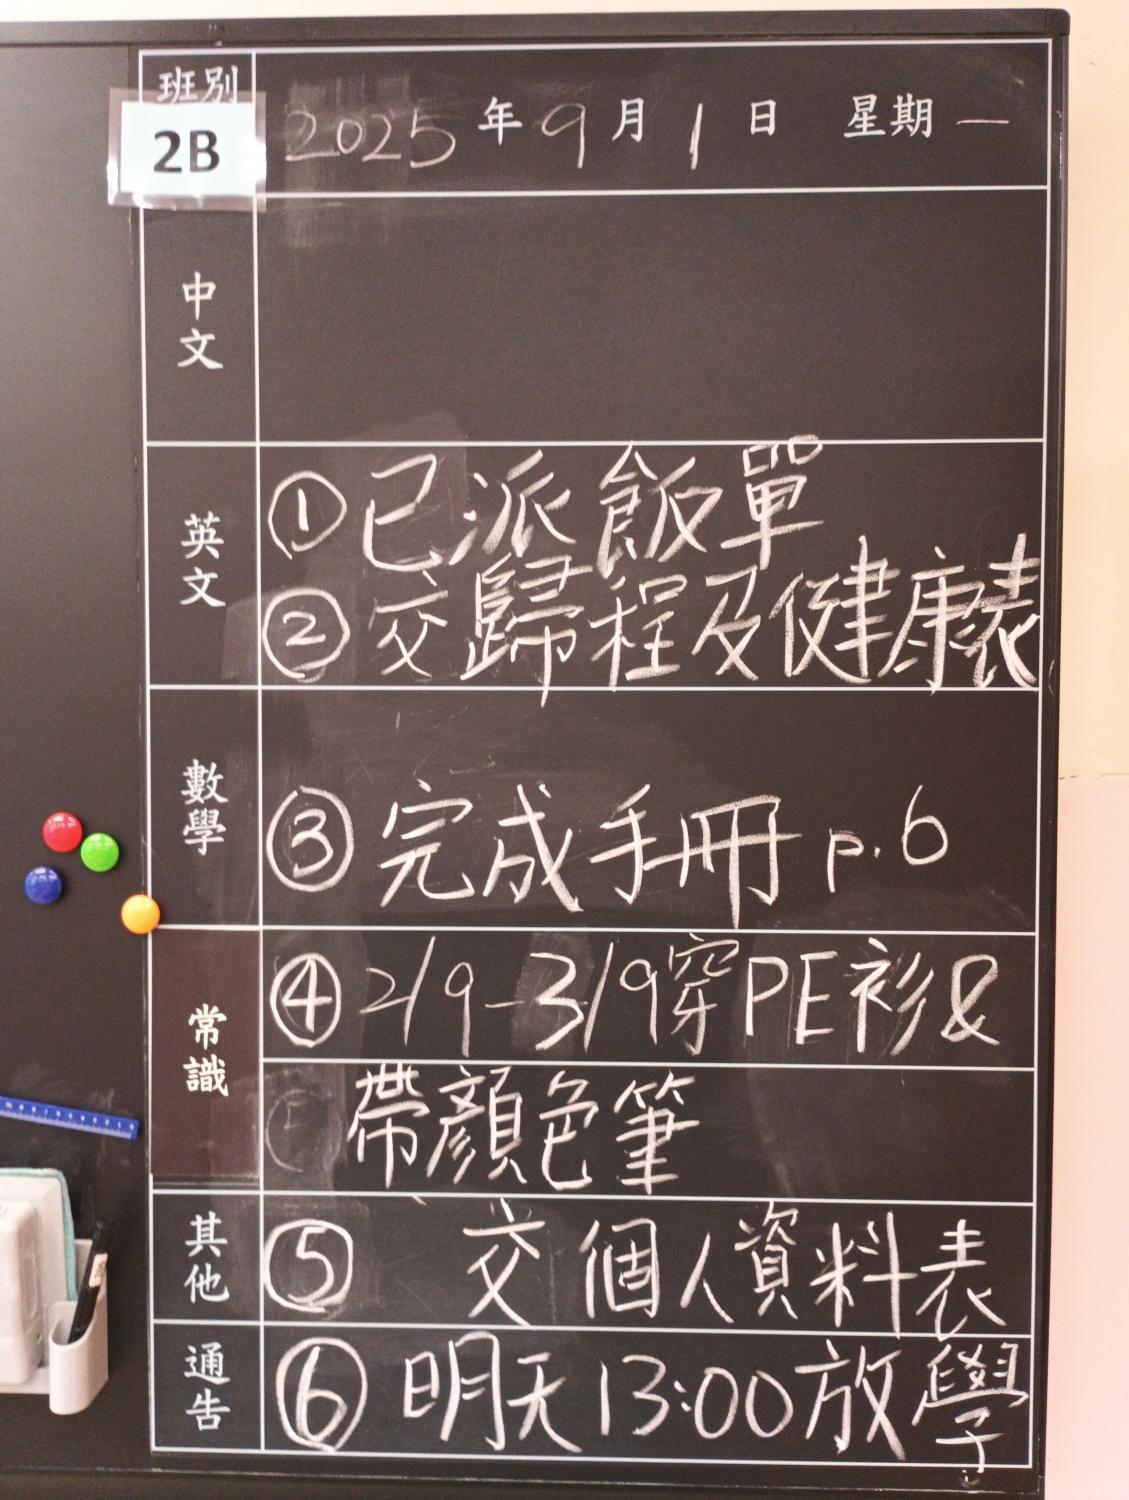 班別
2B
2025年9月1日 星期一
中文
英文
①已派飯單
②交歸程及健康表
數學
③完成手冊 p.6
常識
④2/9-3/9穿PE衫&
帶顏色筆
其他
⑤ 交個人資料表
通告
⑥明天13:00放學